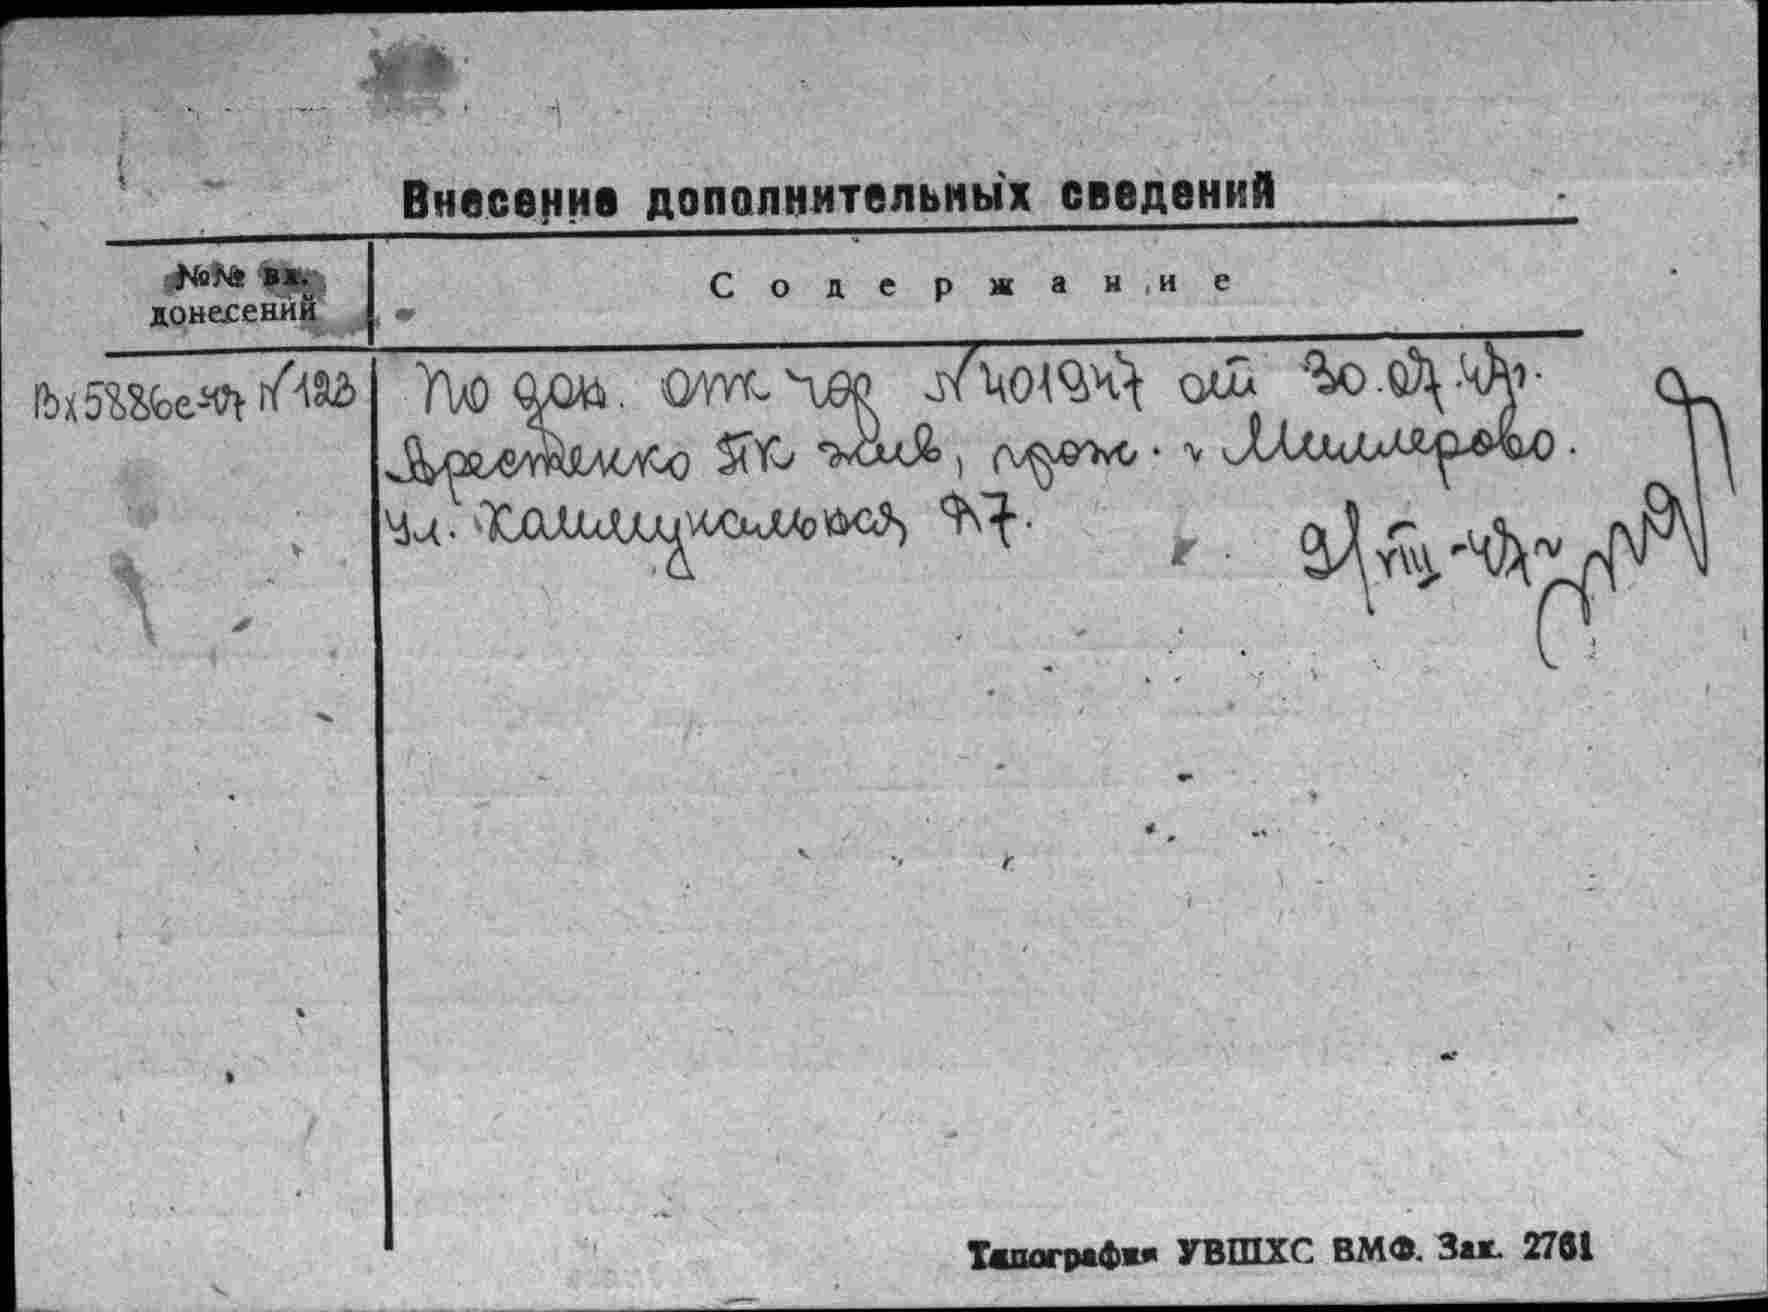 Внесение дополнительных сведений
№№ вх. донесений
Содержание
Вх5886с-47г №123
По дон. отк чф №401947 от 30.07.47г.
жив, прож. г Миллерово.
ул. Коммунальная 7.
9/VIII-47г
Типография УВШХС ВМФ. Зак. 2761